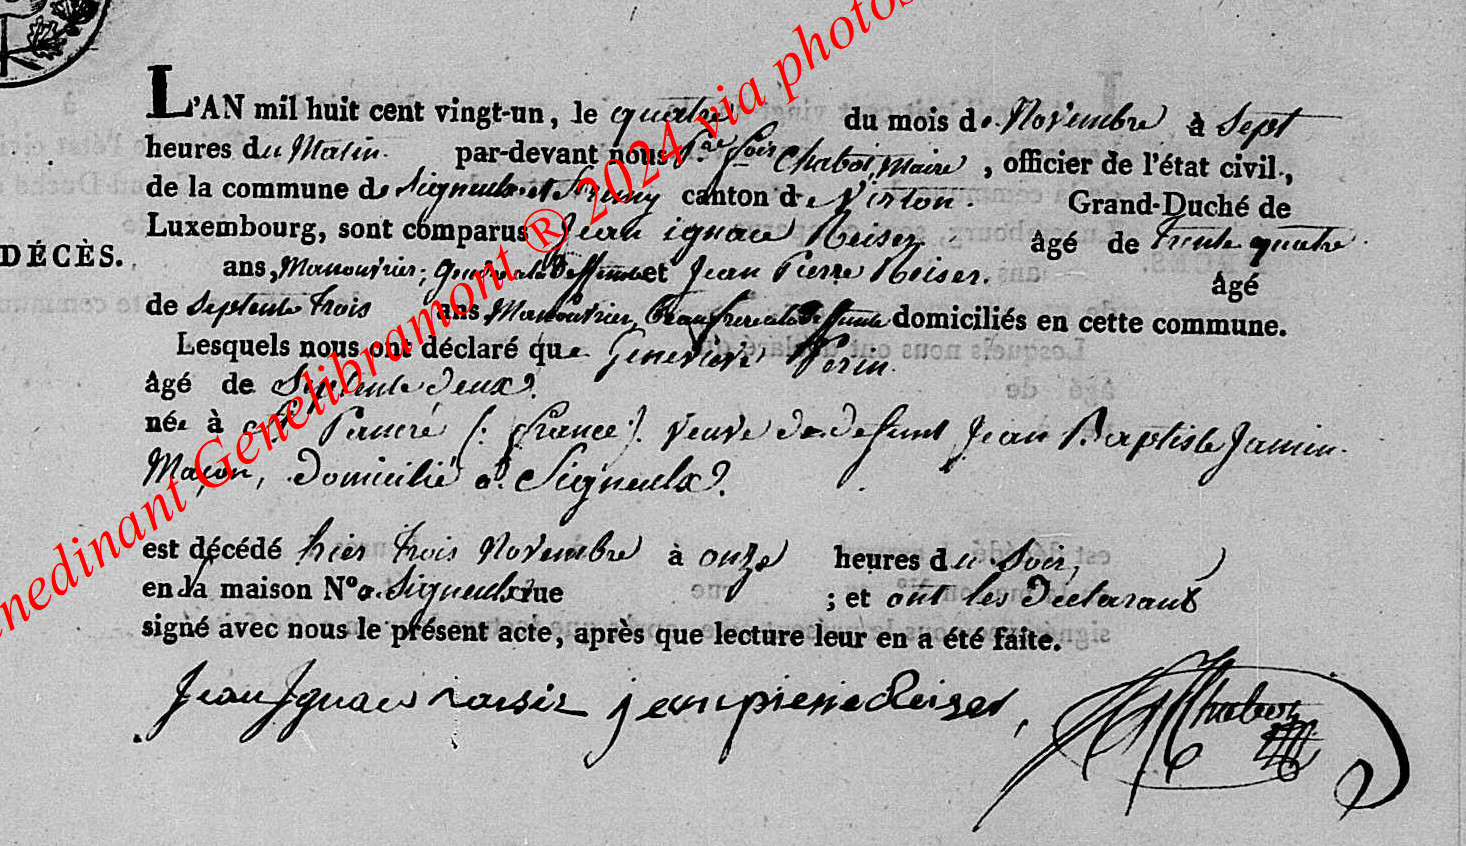 L'AN mil huit cent vingt-un, le quatre du mois de Novembre à Sept
heures du Matin. par-devant nous Chabot, Maire, officier de l'état civil,
de la commune de Signeulx et canton de Virton. Grand-Duché de
Luxembourg, sont comparus Jean ignace Reiser âgé de trente quatre
DÉCÈS.
ans, Manouvrier, Gendre a la Deffunte et Jean Pierre Reiser. âgé
de Septente trois ans, Manouvrier, Beaufrere a la Deffunte domiciliés en cette commune.
Lesquels nous ont déclaré que Genevieve Perin
âgé de Septente deux.
née à St Pancré (: france :). veuve de defunt Jean Baptiste Jamin.
Maçon, Domicilié a Signeulx.
est décédé hier trois Novembre à onze heures du Soir,
en la maison No a Signeulx rue ; et ont les Declarans
signé avec nous le présent acte, après que lecture leur en a été faite.
Jean Ignace jean pierre Reiser Chabot
enedinant Genelibramont ® 2024 via photos